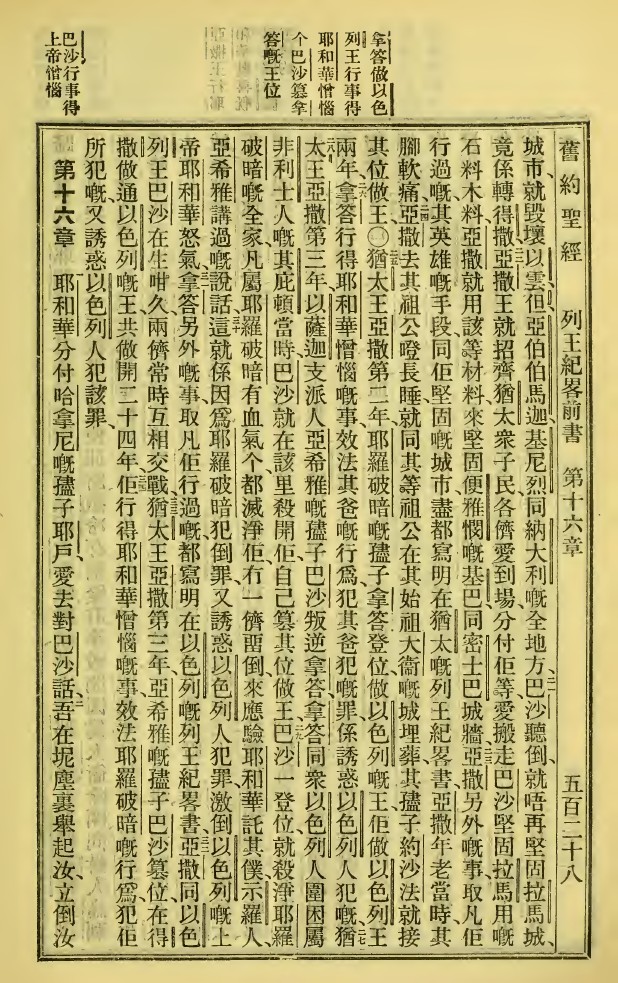 舊約聖經　列王紀畧前書　第十六章　五百二十八
拿答做以色
列王行事得
耶和華憎惱
个巴沙篡拿
答嘅王位
巴沙行事得
上帝憎惱
城市、就毀壞以雲、但、亞伯伯馬迦、基尼烈、同納大利嘅全地方、二一巴沙聽倒、就唔再堅固拉馬城、
竟係轉得撒、二二亞撒王就招齊猶太衆子民、各儕愛到場、分付佢等愛搬走巴沙堅固拉馬用嘅
石料木料、亞撒就用該等材料來堅固便雅憫嘅基巴、同密士巴城牆、二三亞撒另外嘅事、取凡佢
行過嘅、其英雄嘅手段、同佢堅固嘅城市、盡都寫明在猶太嘅列王紀畧書、亞撒年老當時、其
腳軟痛、二四亞撒去其祖公噔長睡、就同其等祖公在其始祖大衞嘅城埋葬、其孻子約沙法就接
其位做王〇二五猶太王亞撒第二年、耶羅破暗嘅孻子拿答登位、做以色列嘅王、佢做以色列王
兩年、二六拿答行得耶和華憎惱嘅事、效法其爸嘅行爲、犯其爸犯嘅罪、係誘惑以色列人犯嘅、二七猶
太王亞撒第三年、以薩迦支派人亞希雅嘅孻子巴沙叛逆拿答、拿答同衆以色列人圍困屬
非利士人嘅其庇頓當時、巴沙就在該里殺開佢、自己篡其位做王、二九巴沙一登位、就殺淨耶羅
破暗嘅全家、凡屬耶羅破暗有血氣个都滅淨佢、冇一儕畱倒、來應驗耶和華託其僕示羅人、
亞希雅講過嘅說話、三十這就係因爲耶羅破暗犯倒罪、又誘惑以色列人犯罪、激倒以色列嘅上
帝耶和華怒氣、三一拿答另外嘅事、取凡佢行過嘅、都寫明在以色列嘅列王紀畧書、三二亞撒同以色
列王巴沙在生咁久、兩儕常時互相交戰、三三猶太王亞撒第三年、亞希雅嘅孻子巴沙篡位、在得
撒做通以色列嘅王、共做開二十四年、三四佢行得耶和華憎惱嘅事、效法耶羅破暗嘅行爲、犯佢
所犯嘅、又誘惑以色列人犯該罪、
第十六章　一耶和華分付哈拿尼嘅孻子耶戶、愛去對巴沙話、二吾在坭塵裏舉起汝、立倒汝